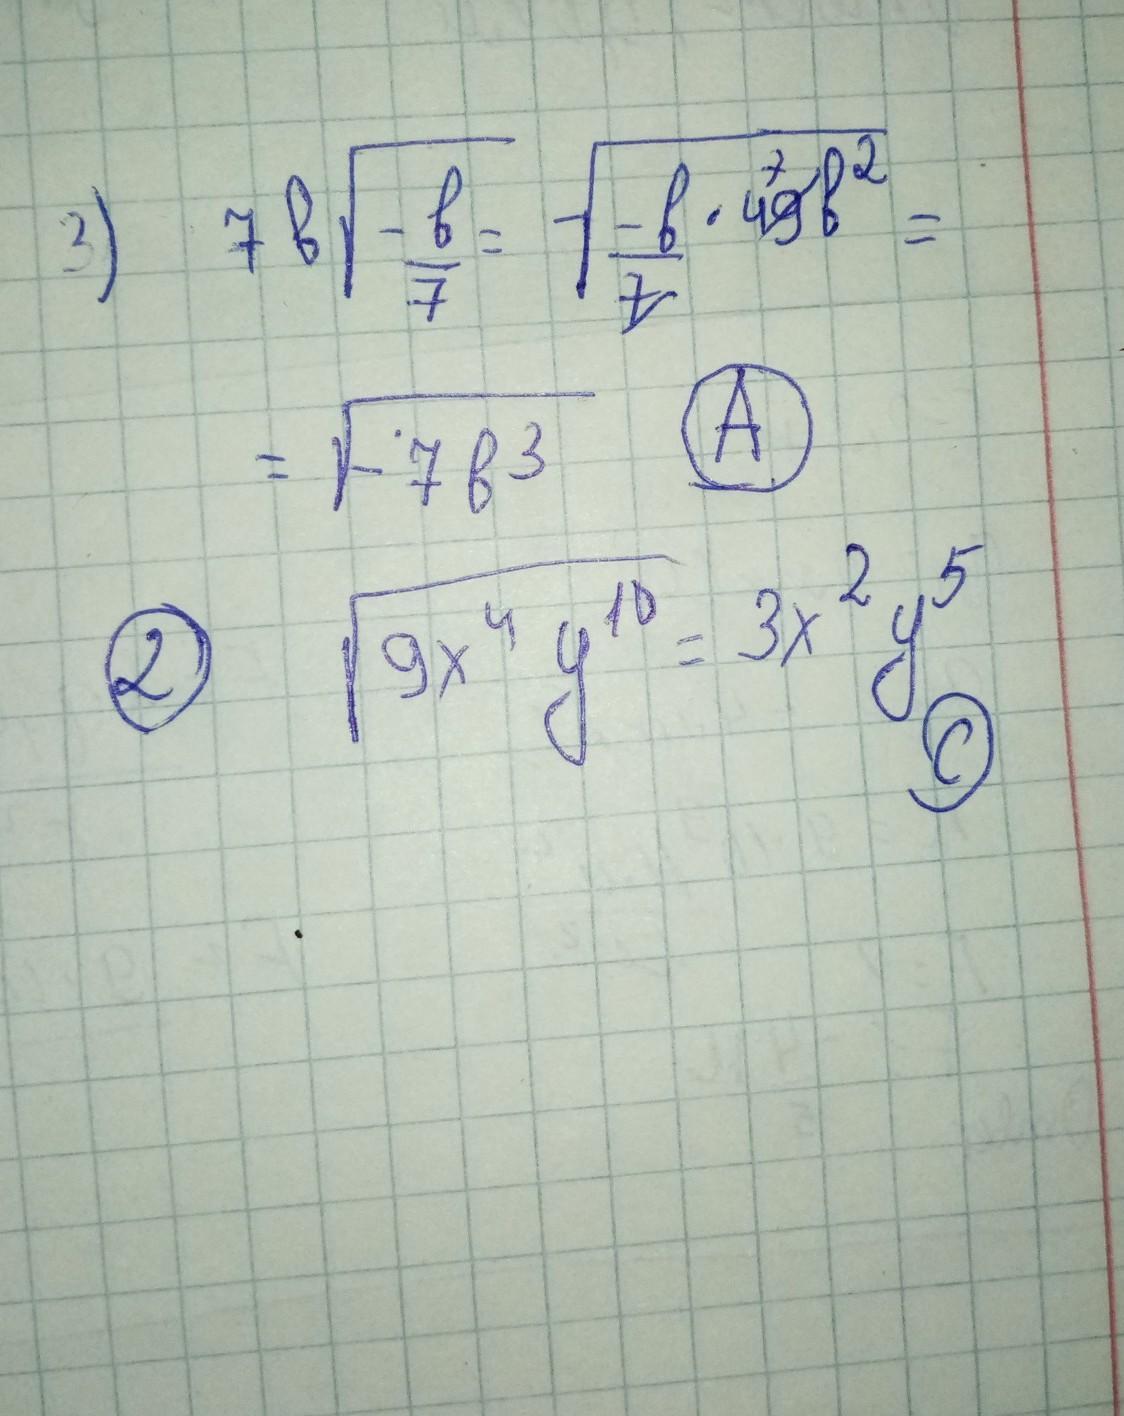 3) 7в√(-в/7) = √(-в/7 · 49в²) =
= √(-7в³) A
2 √(9x⁴y¹⁰) = 3x²y⁵
C